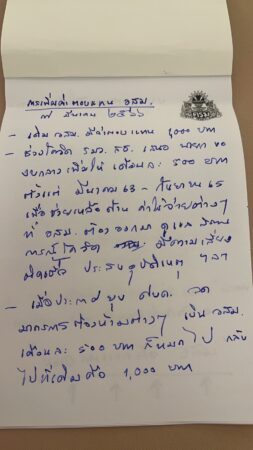 การเพิ่มค่าตอบแทน อสม.
๗ มีนาคม ๒๕๖๖
- เดิม อสม. มีค่าตอบแทน 1,000 บาท
- ช่วงโควิด รมว. สธ. เสนอ นายก ขอ
งบกลาง เพิ่มให้ เดือนละ 500 บาท
ตั้งแต่ มีนาคม 63 - กันยายน 65
เพื่อช่วยเหลือด้าน ค่าใช้จ่ายต่างๆ
ที่ อสม. ต้องออกมา ดูแล สถาน
การณ์โควิด มีความเสี่ยง
ติดเชื้อ ประสบอุบัติเหตุ ฯลฯ
- เมื่อประกาศยุบ ศบค. ลด
มาตรการต้องห้ามต่างๆ เงิน อสม.
เดือนละ 500 บาท ก็หมดไป กลับ
ไปที่เดิมคือ 1,000 บาท